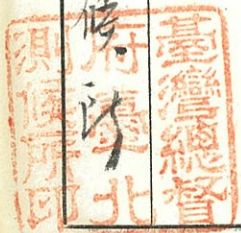 臺灣總督
府臺北
測候所印
候所